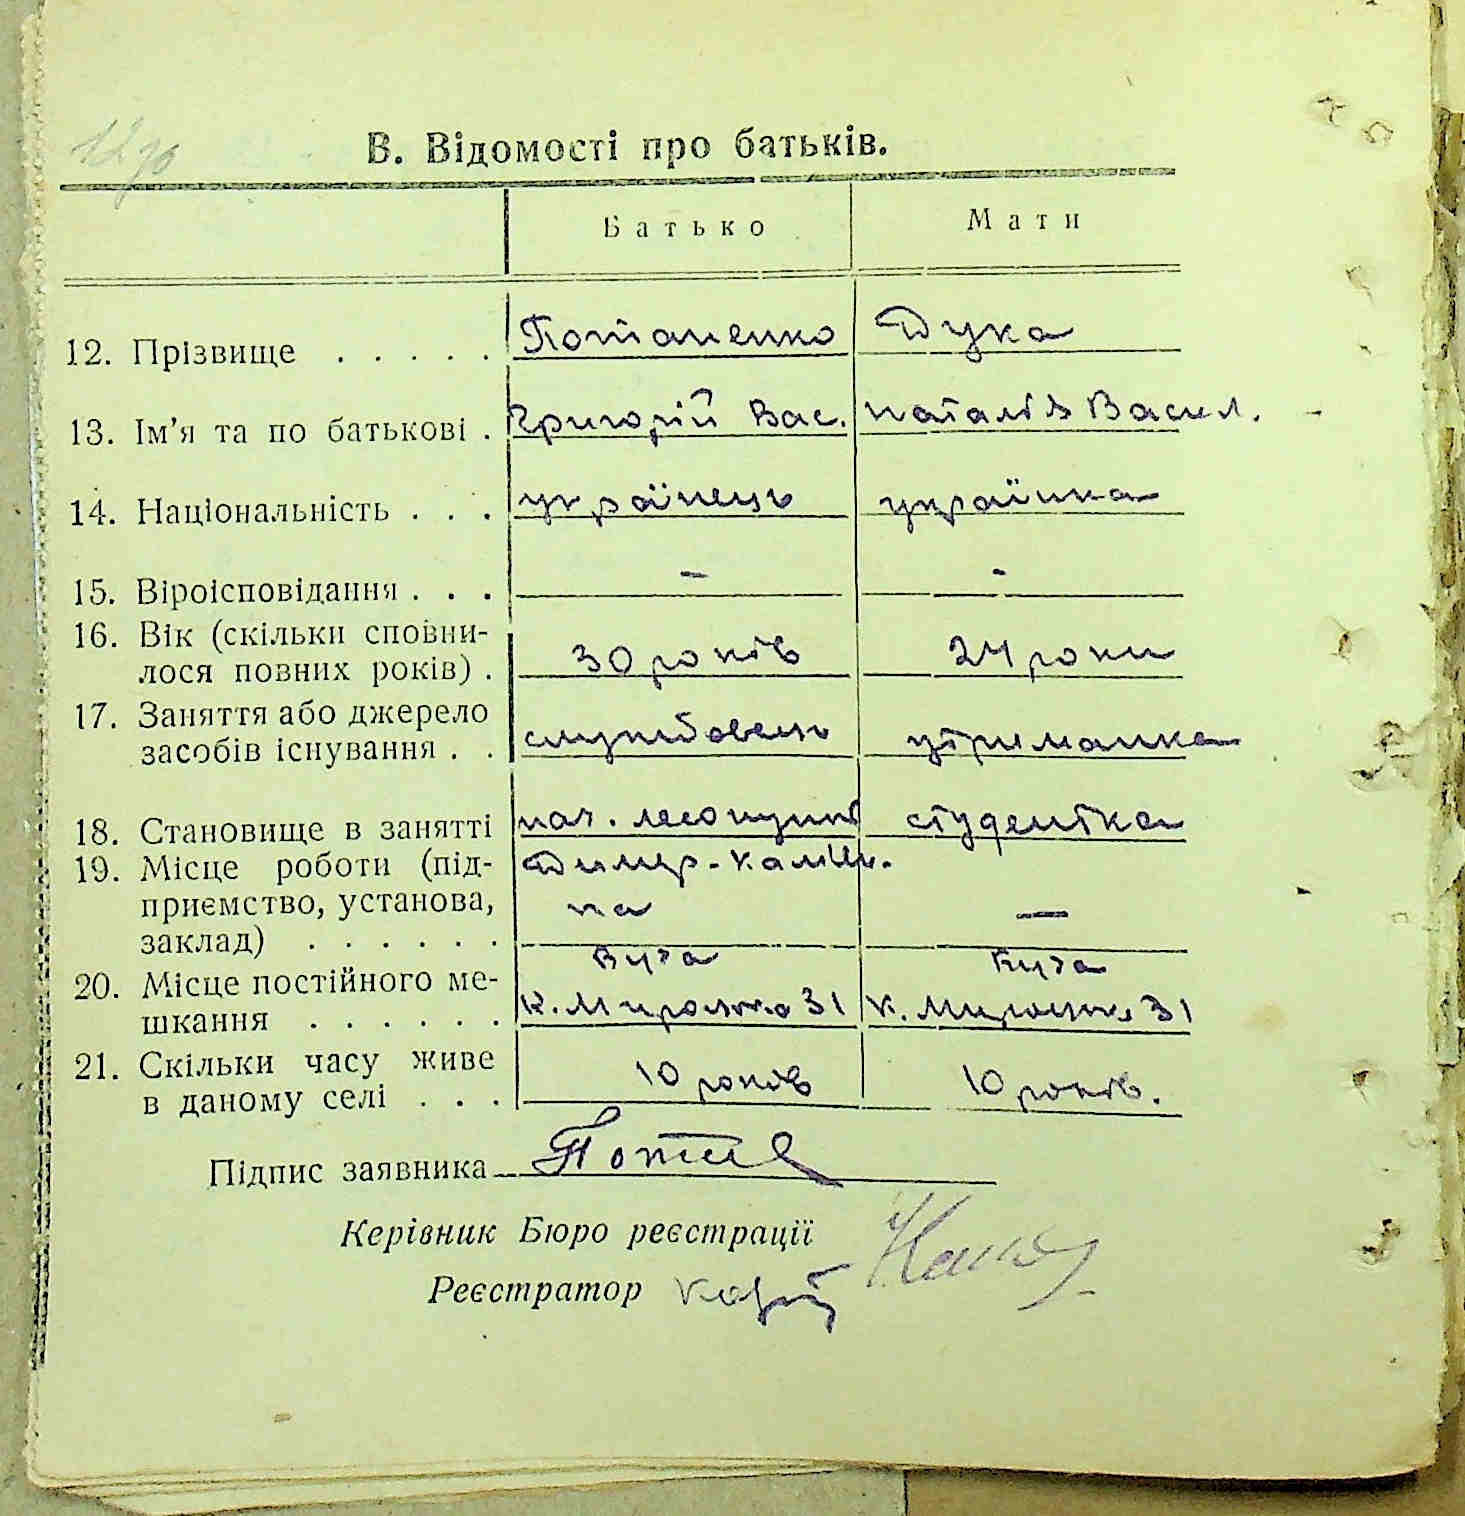 В. Відомості про батьків.
Батько Мати
12. Прізвище . . . . . Потапенко Дука
13. Ім'я та по батькові . Григорій Вас. Наталія Васил.
14. Національність . . . українець українка
15. Віроісповідання . . . - -
16. Вік (скільки сповни-
лося повних років) . 30 років 24 роки
17. Заняття або джерело
засобів існування . . службовець утриманка
18. Становище в занятті нач. лесопункт студентка
19. Місце роботи (під- Димер-
приємство, установа, на —
заклад) . . . . . .
Буча Буча
20. Місце постійного ме-
шкання . . . . . . 31 31
21. Скільки часу живе
в даному селі . . . 10 років 10 років.
Підпис заявника
Керівник Бюро реєстрації
Реєстратор